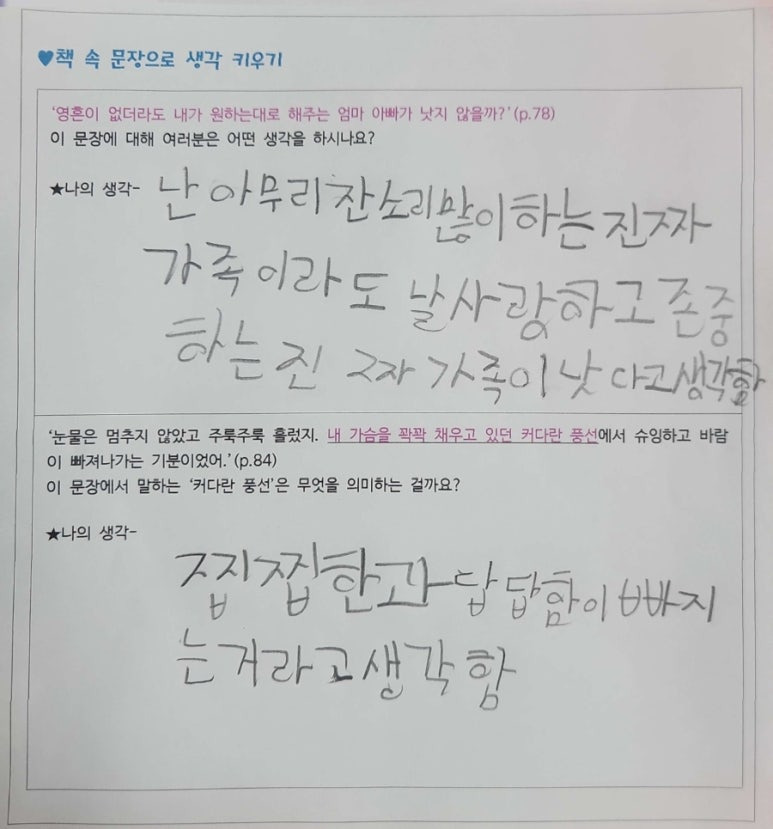 ♥책 속 문장으로 생각 키우기
‘영혼이 없더라도 내가 원하는대로 해주는 엄마 아빠가 낫지 않을까?’(p.78)
이 문장에 대해 여러분은 어떤 생각을 하시나요?
★나의 생각- 난 아무리 잔소리많이하는 진짜
가족이라도 날사랑하고 존중
하는 진짜 가족이 낫다고생각함
‘눈물은 멈추지 않았고 주룩주룩 흘렀지. 내 가슴을 꽉꽉 채우고 있던 커다란 풍선에서 슈잉하고 바람
이 빠져나가는 기분이었어.’(p.84)
이 문장에서 말하는 ‘커다란 풍선’은 무엇을 의미하는 걸까요?
★나의 생각-
찝찝한과 답답함이 빠지
는거라고생각함